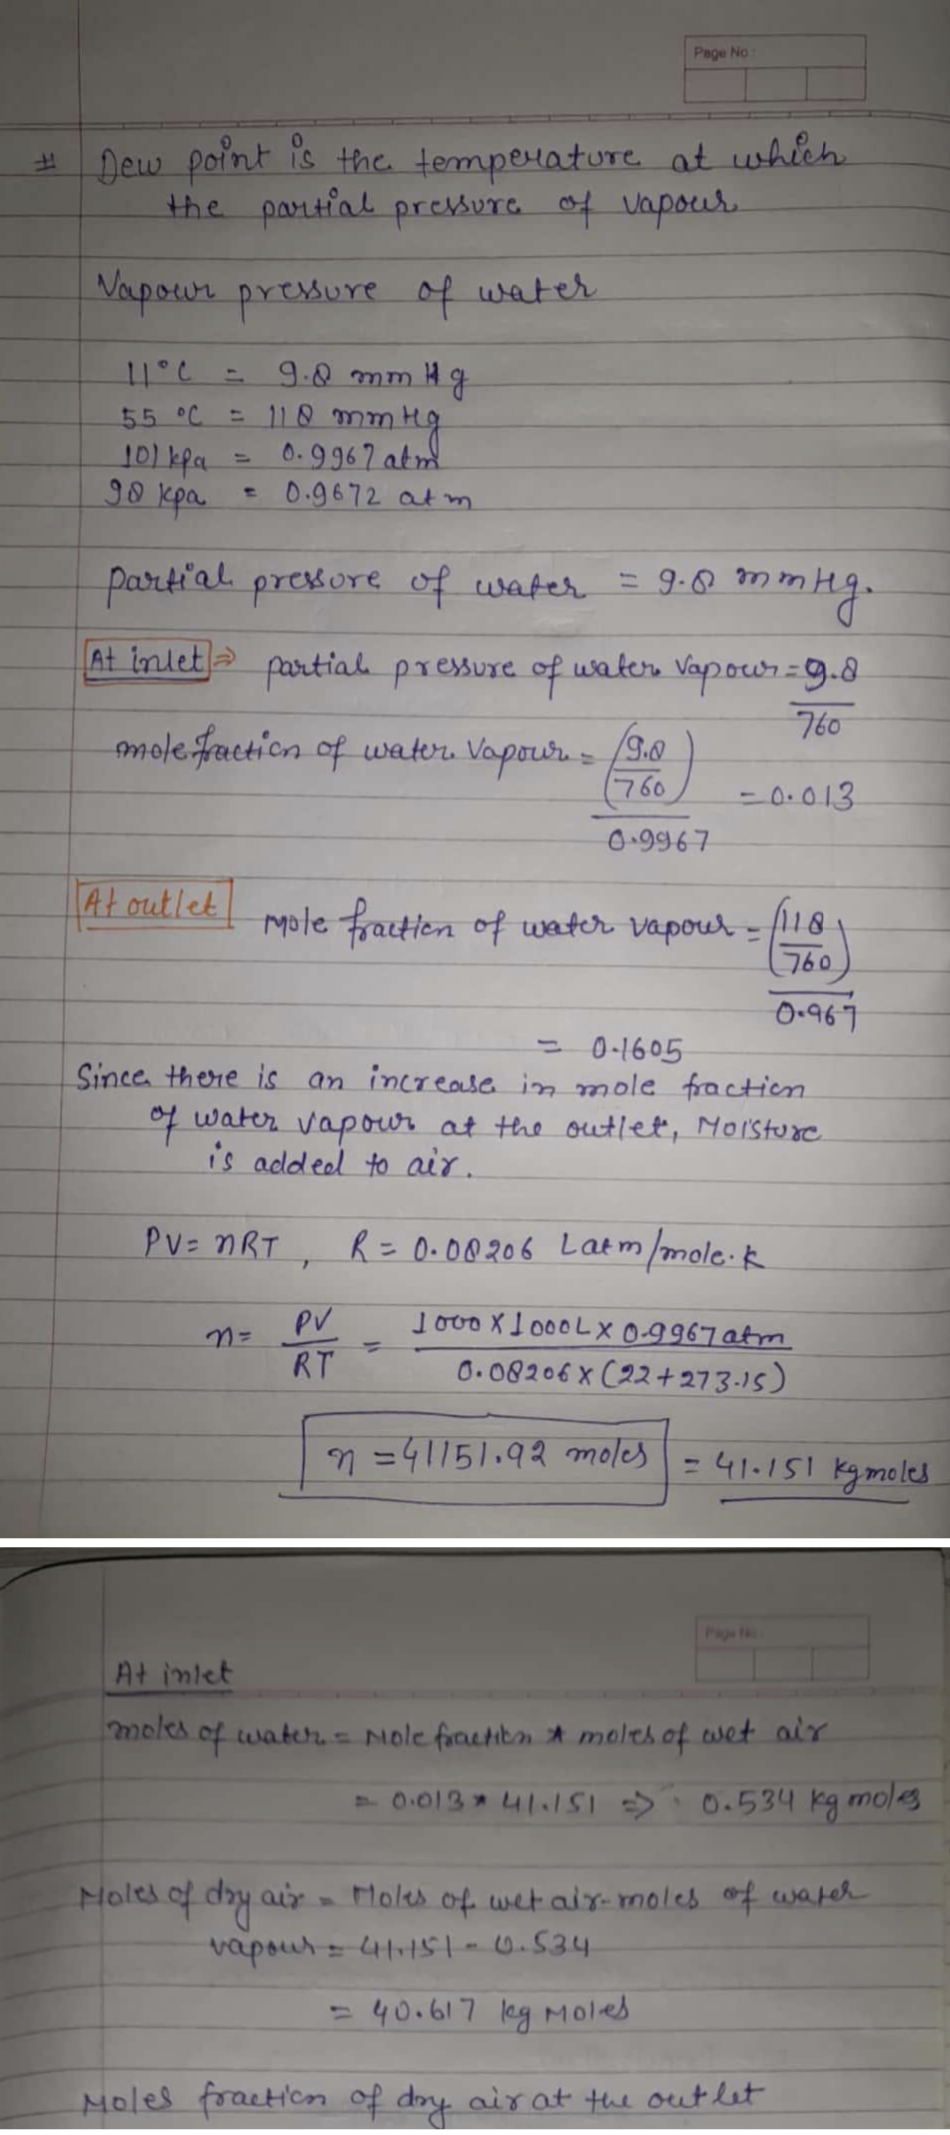 Page No :
# Dew point is the temperature at which
the partial pressure of vapour
Vapour pressure of water
11°C = 9.8 mm Hg
55 °C = 118 mmHg
101 kpa = 0.9967 atm
98 kpa = 0.9672 atm
partial pressure of water = 9.8 mmHg.
At inlet ⇒ partial pressure of water vapour = 9.8
760
mole fraction of water vapour = (9.8
760) = 0.013
0.9967
At outlet Mole fraction of water vapour = (118
760)
0.967
= 0.1605
Since there is an increase in mole fraction
of water vapour at the outlet, Moisture
is added to air.
PV = nRT , R = 0.08206 L atm/mole.k
n = PV = 1000 X 1000L X 0.9967 atm
RT 0.08206 X (22+273.15)
n = 41151.92 moles = 41.151 kgmoles
Page No :
At inlet
moles of water = Mole fraction * moles of wet air
= 0.013 * 41.151 => 0.534 kg moles
Moles of dry air = Moles of wet air - moles of water
vapour = 41.151 - 0.534
= 40.617 kg Moles
Moles fraction of dry air at the outlet